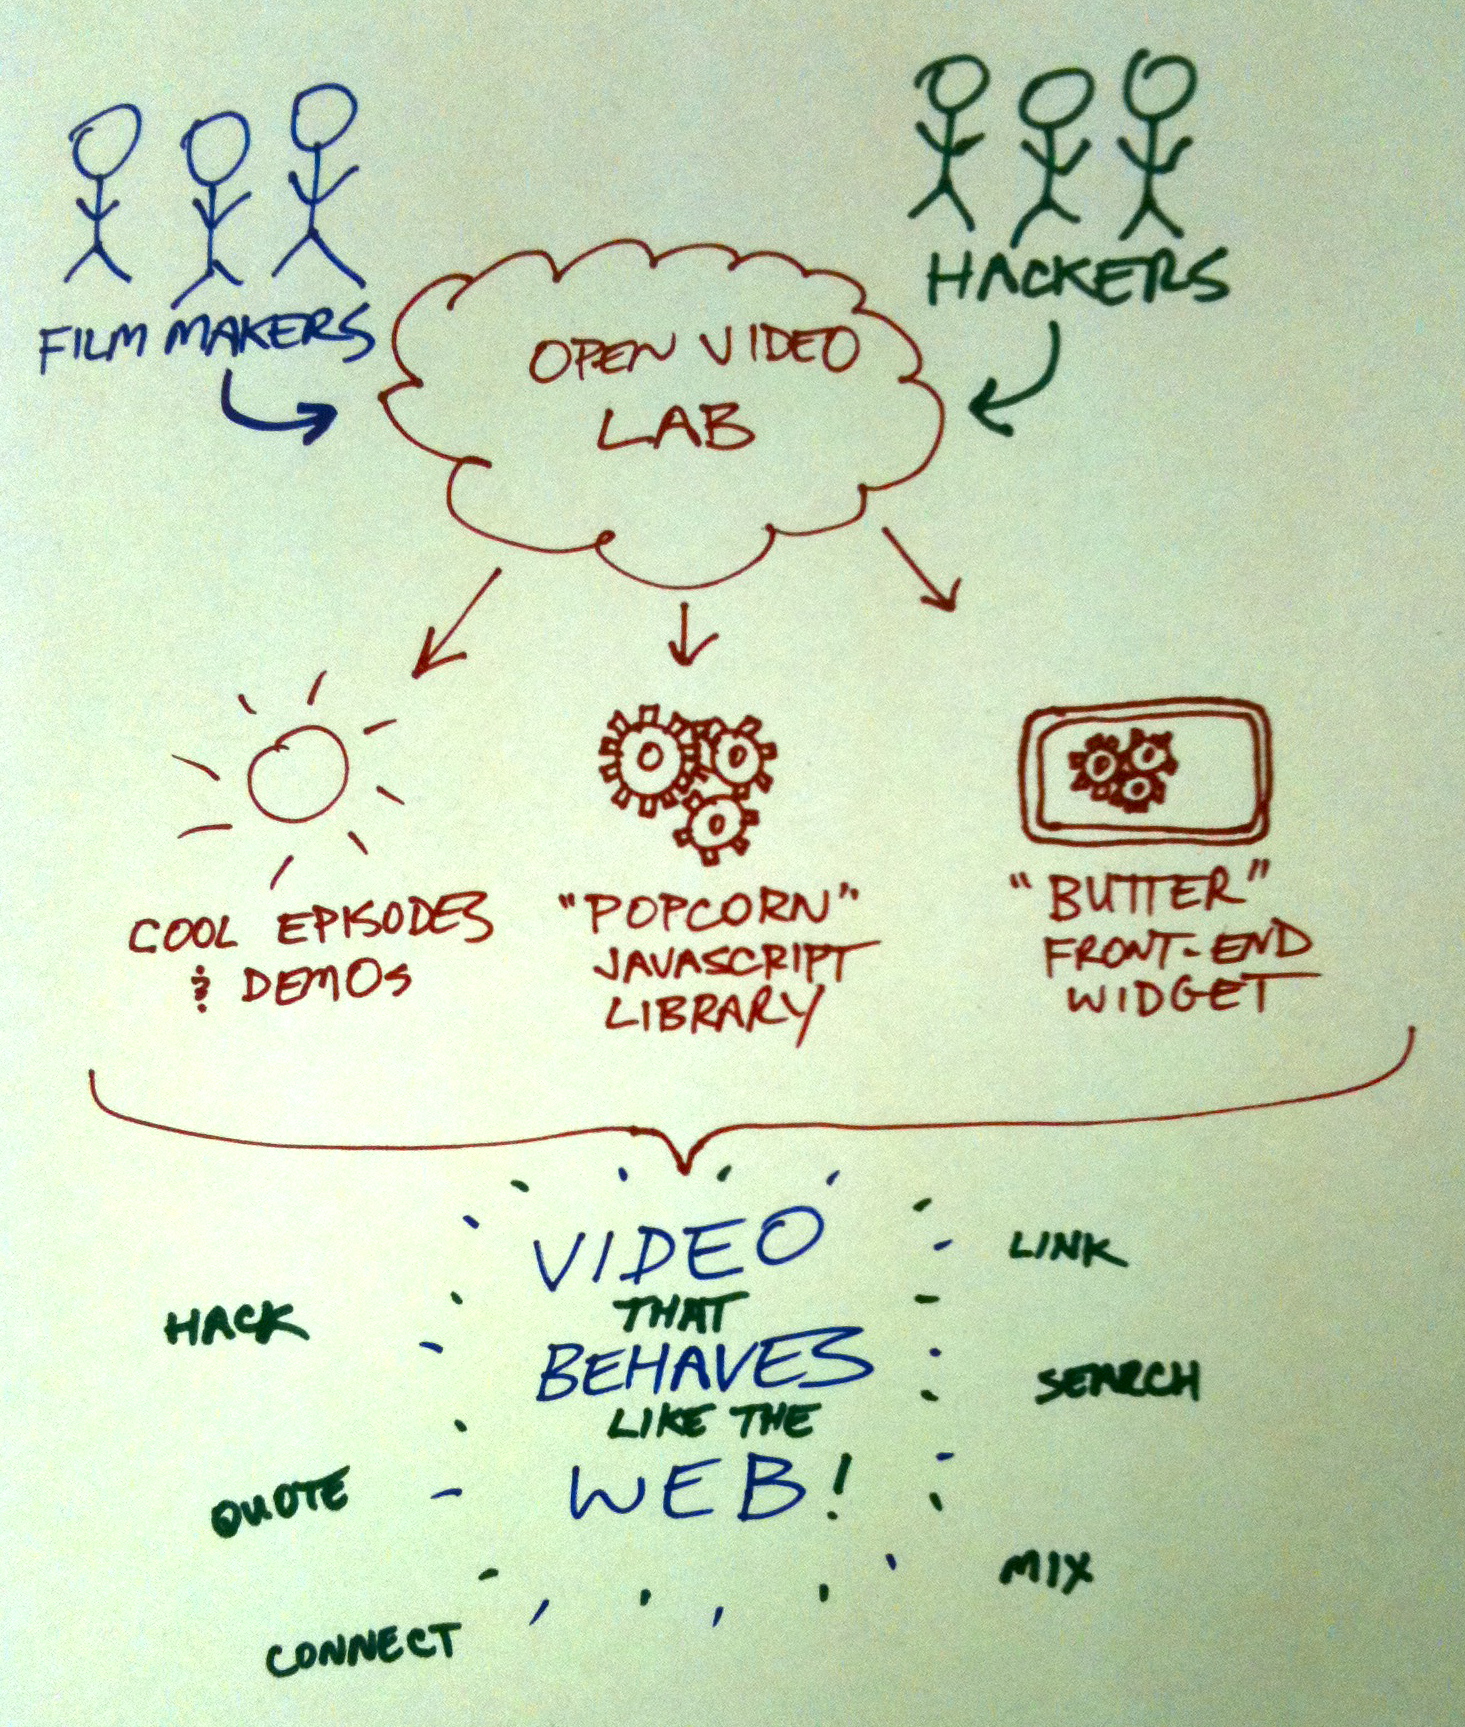 FILM MAKERS
HACKERS
OPEN VIDEO
LAB
COOL EPISODES
& DEMOS
"POPCORN"
JAVASCRIPT
LIBRARY
"BUTTER"
FRONT-END
WIDGET
VIDEO
THAT
BEHAVES
LIKE THE
WEB!
HACK
QUOTE
CONNECT
LINK
SEARCH
MIX